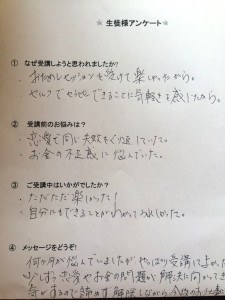 ★ 生徒様アンケート ★
① なぜ受講しようと思われましたか?
・お試しセッションを受けて楽しかったから。
・セルフでセラピーできることに気軽さを感じたから。
② 受講前のお悩みは?
・恋愛で同じ失敗をくり返していた。
・お金の不足感に悩んでいた。
③ ご受講中はいかがでしたか?
・ただただ楽しかった!
・自分にもできることがわかってうれしかった。
④ メッセージをどうぞ!
何か月か悩んでいましたが やっぱり受講して よかった
少しずつ恋愛やお金の問題が解決に向かってき
気がするので 諦めず 解除しながら 今後の